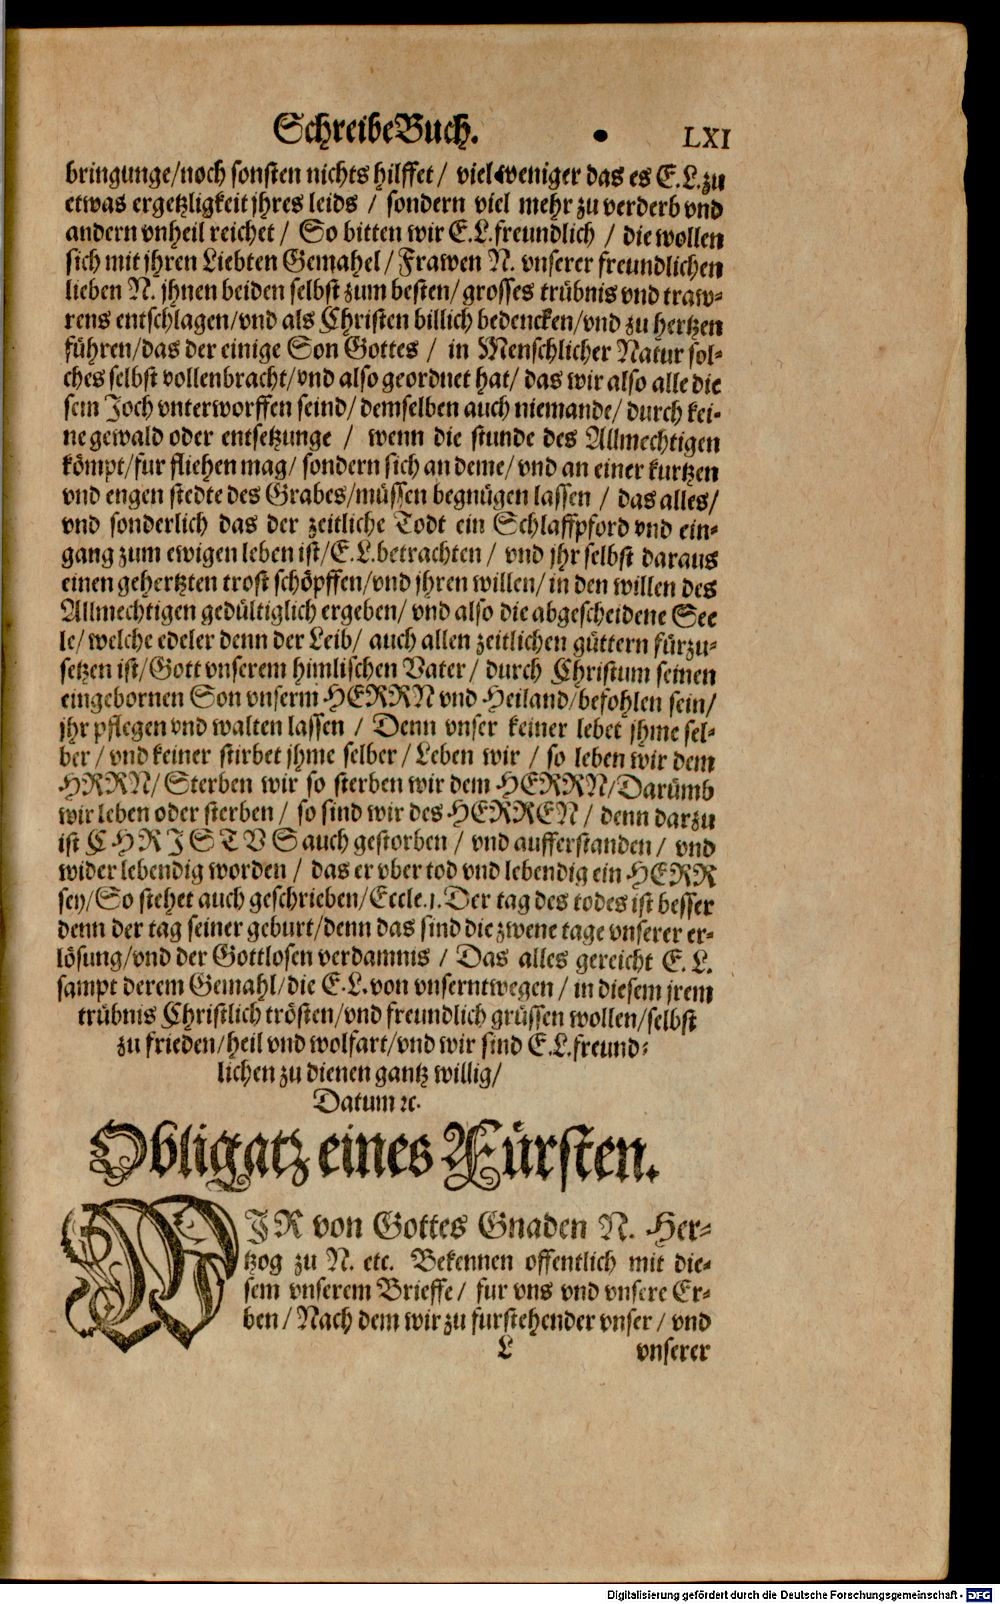 SchreibeBuch. LXI
bringunge/noch sonsten nichts hilffet/ viel weniger das es E.L.zu
etwas ergetzligkeit jhres leids / sondern viel mehr zu verderb vnd
andern vnheil reichet / So bitten wir E.L.freundlich / die wollen
sich mit jhren Liebten Gemahel/Frawen N. vnserer freundlichen
lieben N. jhnen beiden selbst zum besten/ grosses trübnis vnd traw-
rens entschlagen/vnd als Christen billich bedencken/vnd zu hertzen
führen/das der einige Son Gottes / in Menschlicher Natur sol-
ches selbst vollenbracht/vnd also geordnet hat/ das wir also alle die
sem Joch vnterworffen seind/ demselben auch niemande/ durch kei-
ne gewald oder entsetzunge / wenn die stunde des Allmechtigen
kömpt/fur fliehen mag/ sondern sich an deme/ vnd an einer kurtzen
vnd engen stedte des Grabes/müssen begnügen lassen / das alles/
vnd sonderlich das der zeitliche Todt ein Schlaffpford vnd ein-
gang zum ewigen leben ist/E.L.betrachten / vnd jhr selbst daraus
einen gehertzten trost schöpffen/vnd jhren willen/ in den willen des
Allmechtigen gedültiglich ergeben/ vnd also die abgescheidene See
le/ welche edeler denn der Leib/ auch allen zeitlichen güttern fürzu-
setzen ist/Gott vnserem himlischen Vater / durch Christum seinen
eingebornen Son vnserm HERRN vnd Heiland/befohlen sein/
jhr pflegen vnd walten lassen / Denn vnser keiner lebet jhme sel-
ber / vnd keiner stirbet jhme selber / Leben wir / so leben wir dem
HRRN/ Sterben wir so sterben wir dem HERRN/Darümb
wir leben oder sterben / so sind wir des HERREN / denn darzu
ist CHRISTVS auch gestorben / vnd aufferstanden / vnd
wider lebendig worden / das er vber tod vnd lebendig ein HERR
sey/So stehet auch geschrieben/Eccle.1.Der tag des todes ist besser
denn der tag seiner geburt/denn das sind die zwene tage vnserer er-
lösung/vnd der Gottlosen verdamnis / Das alles gereicht E. L.
sampt derem Gemahl/die E.L.von vnserntwegen / in diesem jrem
trübnis Christlich trösten/vnd freundlich grüssen wollen/selbst
zu frieden/heil vnd wolfart/vnd wir sind E.L.freund-
lichen zu dienen gantz willig/
Datum ꝛc.
Obligatz eines Fürsten.
WJR von Gottes Gnaden N. Her-
tzog zu N. etc. Bekennen offentlich mit die-
sem vnserem Brieffe/ fur vns vnd vnsere Er-
ben / Nach dem wir zu furstehender vnser / vnd
L vnserer
Digitalisierung gefördert durch die Deutsche Forschungsgemeinschaft - DFG